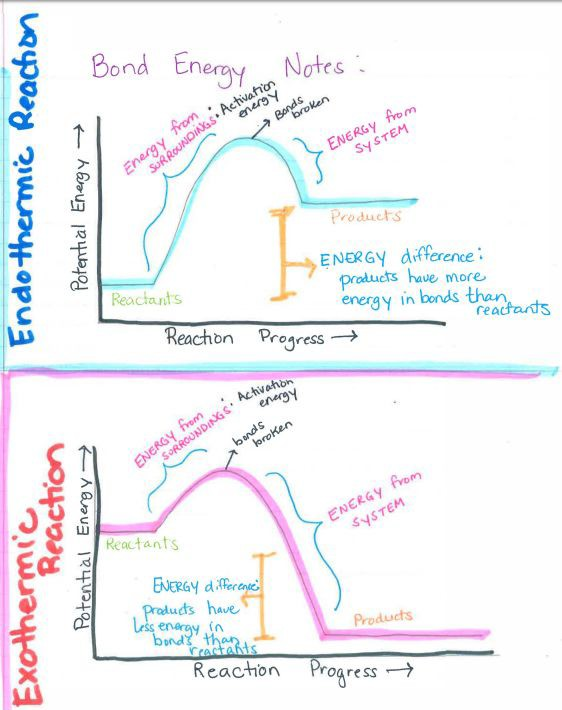 Bond Energy Notes:
Endothermic Reaction
Energy from
SURROUNDINGS: Activation
energy
Bonds
broken
ENERGY from
SYSTEM
Potential Energy →
Reactants
Products
ENERGY difference:
products have more
energy in bonds than
reactants
Reaction Progress →
Exothermic
Reaction
ENERGY from
SURROUNDINGS: Activation
energy
bonds
broken
ENERGY from
SYSTEM
Potential Energy →
Reactants
ENERGY difference:
products have
less energy in
bonds than
reactants
Products
Reaction Progress →